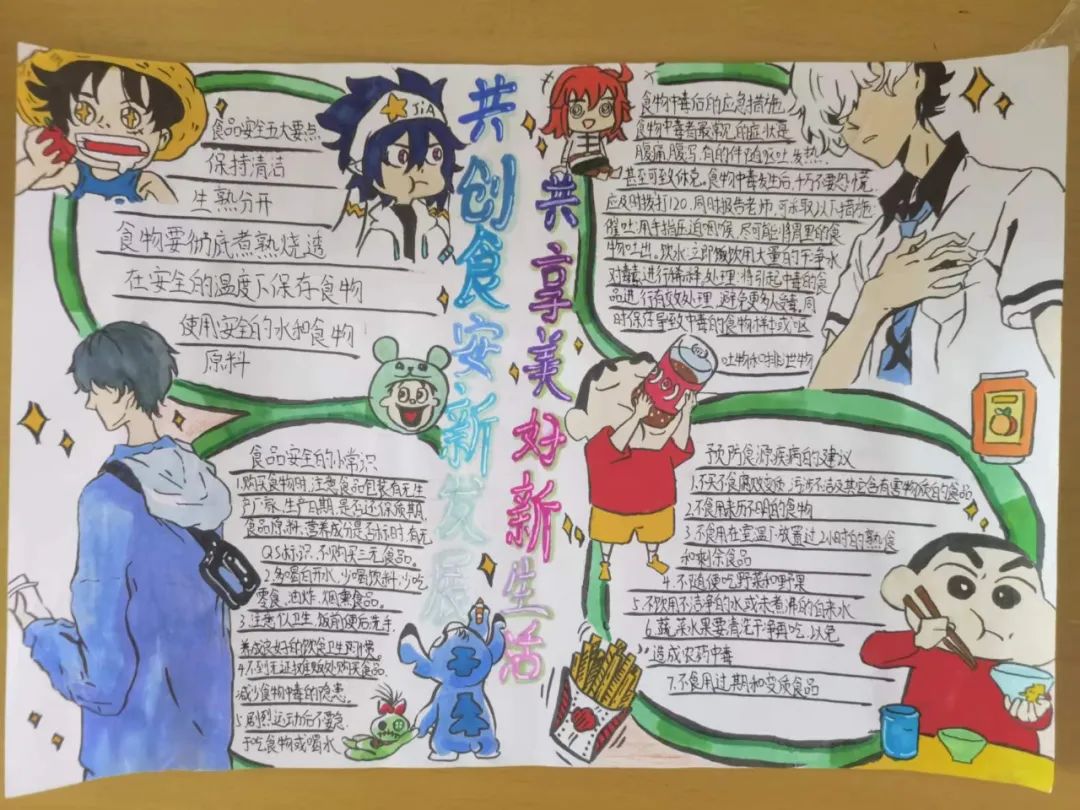 共创食安新发展
共享美好新生活
JiA
食品安全五大要点
保持清洁
生熟分开
食物要彻底煮熟烧透
在安全的温度下保存食物
使用安全的水和食物
原料
食物中毒后的应急措施
食物中毒者最常见的症状是
腹痛,腹泻,有的伴随呕吐、发热.
甚至可致休克。食物中毒发生后,千万不要恐慌
应及时拨打120.同时报告老师,可采取以下措施
催吐:用手指压迫咽喉,尽可能将胃里的食
物吐出。饮水:立即饮用大量的干净水
对毒素进行稀释.处理:将引起中毒的食
品进行有效处理,避免更多人受毒,同
时保存导致中毒的食物样本或呕
吐物和排泄物
食品安全的小常识
1.购买食物时,注意食品包装有无生
产厂家、生产日期,是否过保质期,
食品原料、营养成分是否标时,有无
QS标识,不购买三无食品。
2.多喝白开水,少喝饮料,少吃
零食、油炸、烟熏食品。
3.注意个人卫生,饭前便后洗手,
养成良好的饮食卫生习惯。
4.不到无证摊贩处购买食品.
减少食物中毒的隐患。
5.剧烈运动后不要急
于吃食物或喝水
预防食源疾病的建议
1.不买不食腐败变质、污秽不洁及其它含有害物质的食品
2.不食用来历不明的食物
3.不食用在室温下放置过2小时的熟食
和剩余食品
4.不随便吃野菜和野果
5.不饮用不洁净的水或未煮沸的自来水
6.蔬菜水果要清洗干净再吃,以免
造成农药中毒
7.不食用过期和变质食品